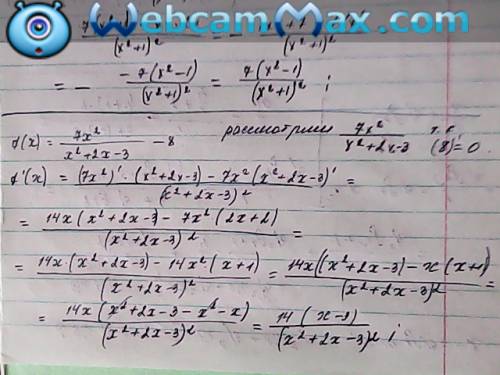 WebcamMax.com
(x²+1)² (x²+1)²
= - -7(x²-1)/(x²+1)² = 7(x²-1)/(x²+1)² ;
f(x) = 7x²/(x²+2x-3) - 8 рассмотрим 7x²/(x²+2x-3) т.к (8)'=0
f'(x) = ((7x²)'·(x²+2x-3) - 7x²(x²+2x-3)')/(x²+2x-3)² =
= (14x(x²+2x-3) - 7x²(2x+2))/(x²+2x-3)² =
= (14x·(x²+2x-3) - 14x²·(x+1))/(x²+2x-3)² = (14x((x²+2x-3) - x(x+1))/(x²+2x-3)² =
= 14x(x²+2x-3-x²-x)/(x²+2x-3)² = 14(x-3)/(x²+2x-3)² ;